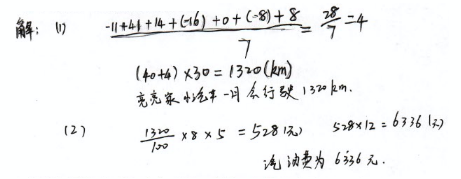 解: (1) (-11+41+14+(-16)+0+(-8)+8)/7 = 28/7 = 4
(40+4)×30=1320(km)
亮亮家小汽车一月会行驶1320km.
(2) 1320/100 ×8×5=528(元) 528×12=6336(元)
汽油费为6336元.